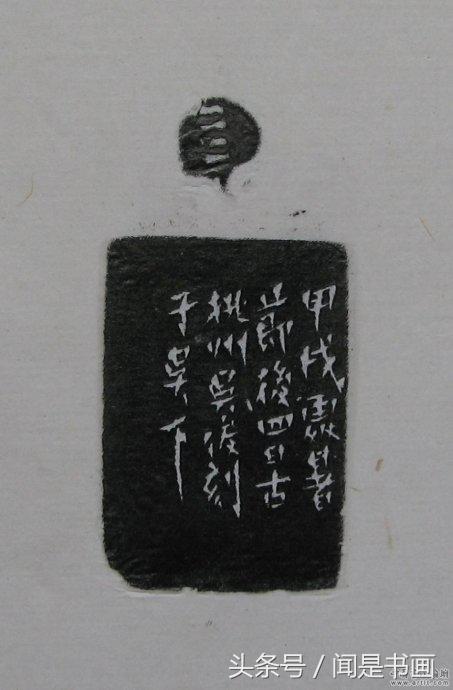 甲戌處暑
之節後四日古
桃州吳浚刻
于吳下
头条号 / 闻是书画